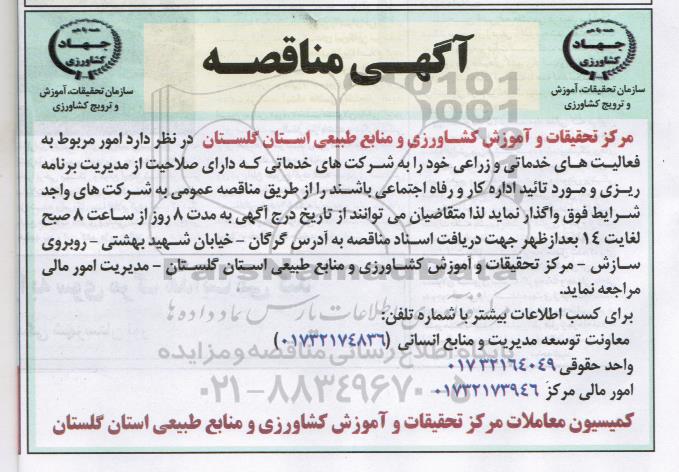 همه با هم
جهاد
کشاورزی
سازمان تحقیقات، آموزش
و ترویج کشاورزی
آگهـی مناقصـه
همه با هم
جهاد
کشاورزی
سازمان تحقیقات، آموزش
و ترویج کشاورزی
مرکز تحقیقات و آموزش کشـاورزی و منابع طبیعی اسـتان گلسـتان در نظر دارد امور مربوط به
فعالیت هـای خدماتی و زراعی خود را به شـرکت های خدماتی کـه دارای صلاحیت از مدیریت برنامه
ریـزی و مـورد تائید اداره کار و رفاه اجتماعی باشـند را از طریق مناقصه عمومی به شـرکت های واجد
شـرایط فوق واگذار نماید لذا متقاضیان می توانند از تاریخ درج آگهی به مدت ۸ روز از سـاعت ۸ صبح
لغایت ۱۴ بعدازظهر جهت دریافت اسـناد مناقصه به آدرس گرگان - خیابان شـهید بهشتی - روبروی
سـازش - مرکز تحقیقات و آموزش کشـاورزی و منابع طبیعی اسـتان گلسـتان - مدیریت امور مالی
مراجعه نماید.
برای کسب اطلاعات بیشتر با شماره تلفن:
معاونت توسعه مدیریت و منابع انسانی (۰۱۷۳۲۱۷۴۸۳۶)
واحد حقوقی ۰۱۷۳۲۱۶۴۰۴۹
امور مالی مرکز ۰۱۷۳۲۱۷۳۹۴۶
کمیسیون معاملات مرکز تحقیقات و آموزش کشاورزی و منابع طبیعی استان گلستان
ParsNamadData
پایگاه اطلاع رسانی مناقصه و مزایده
۰۲۱-۸۸۳۴۹۶۷۰-۵